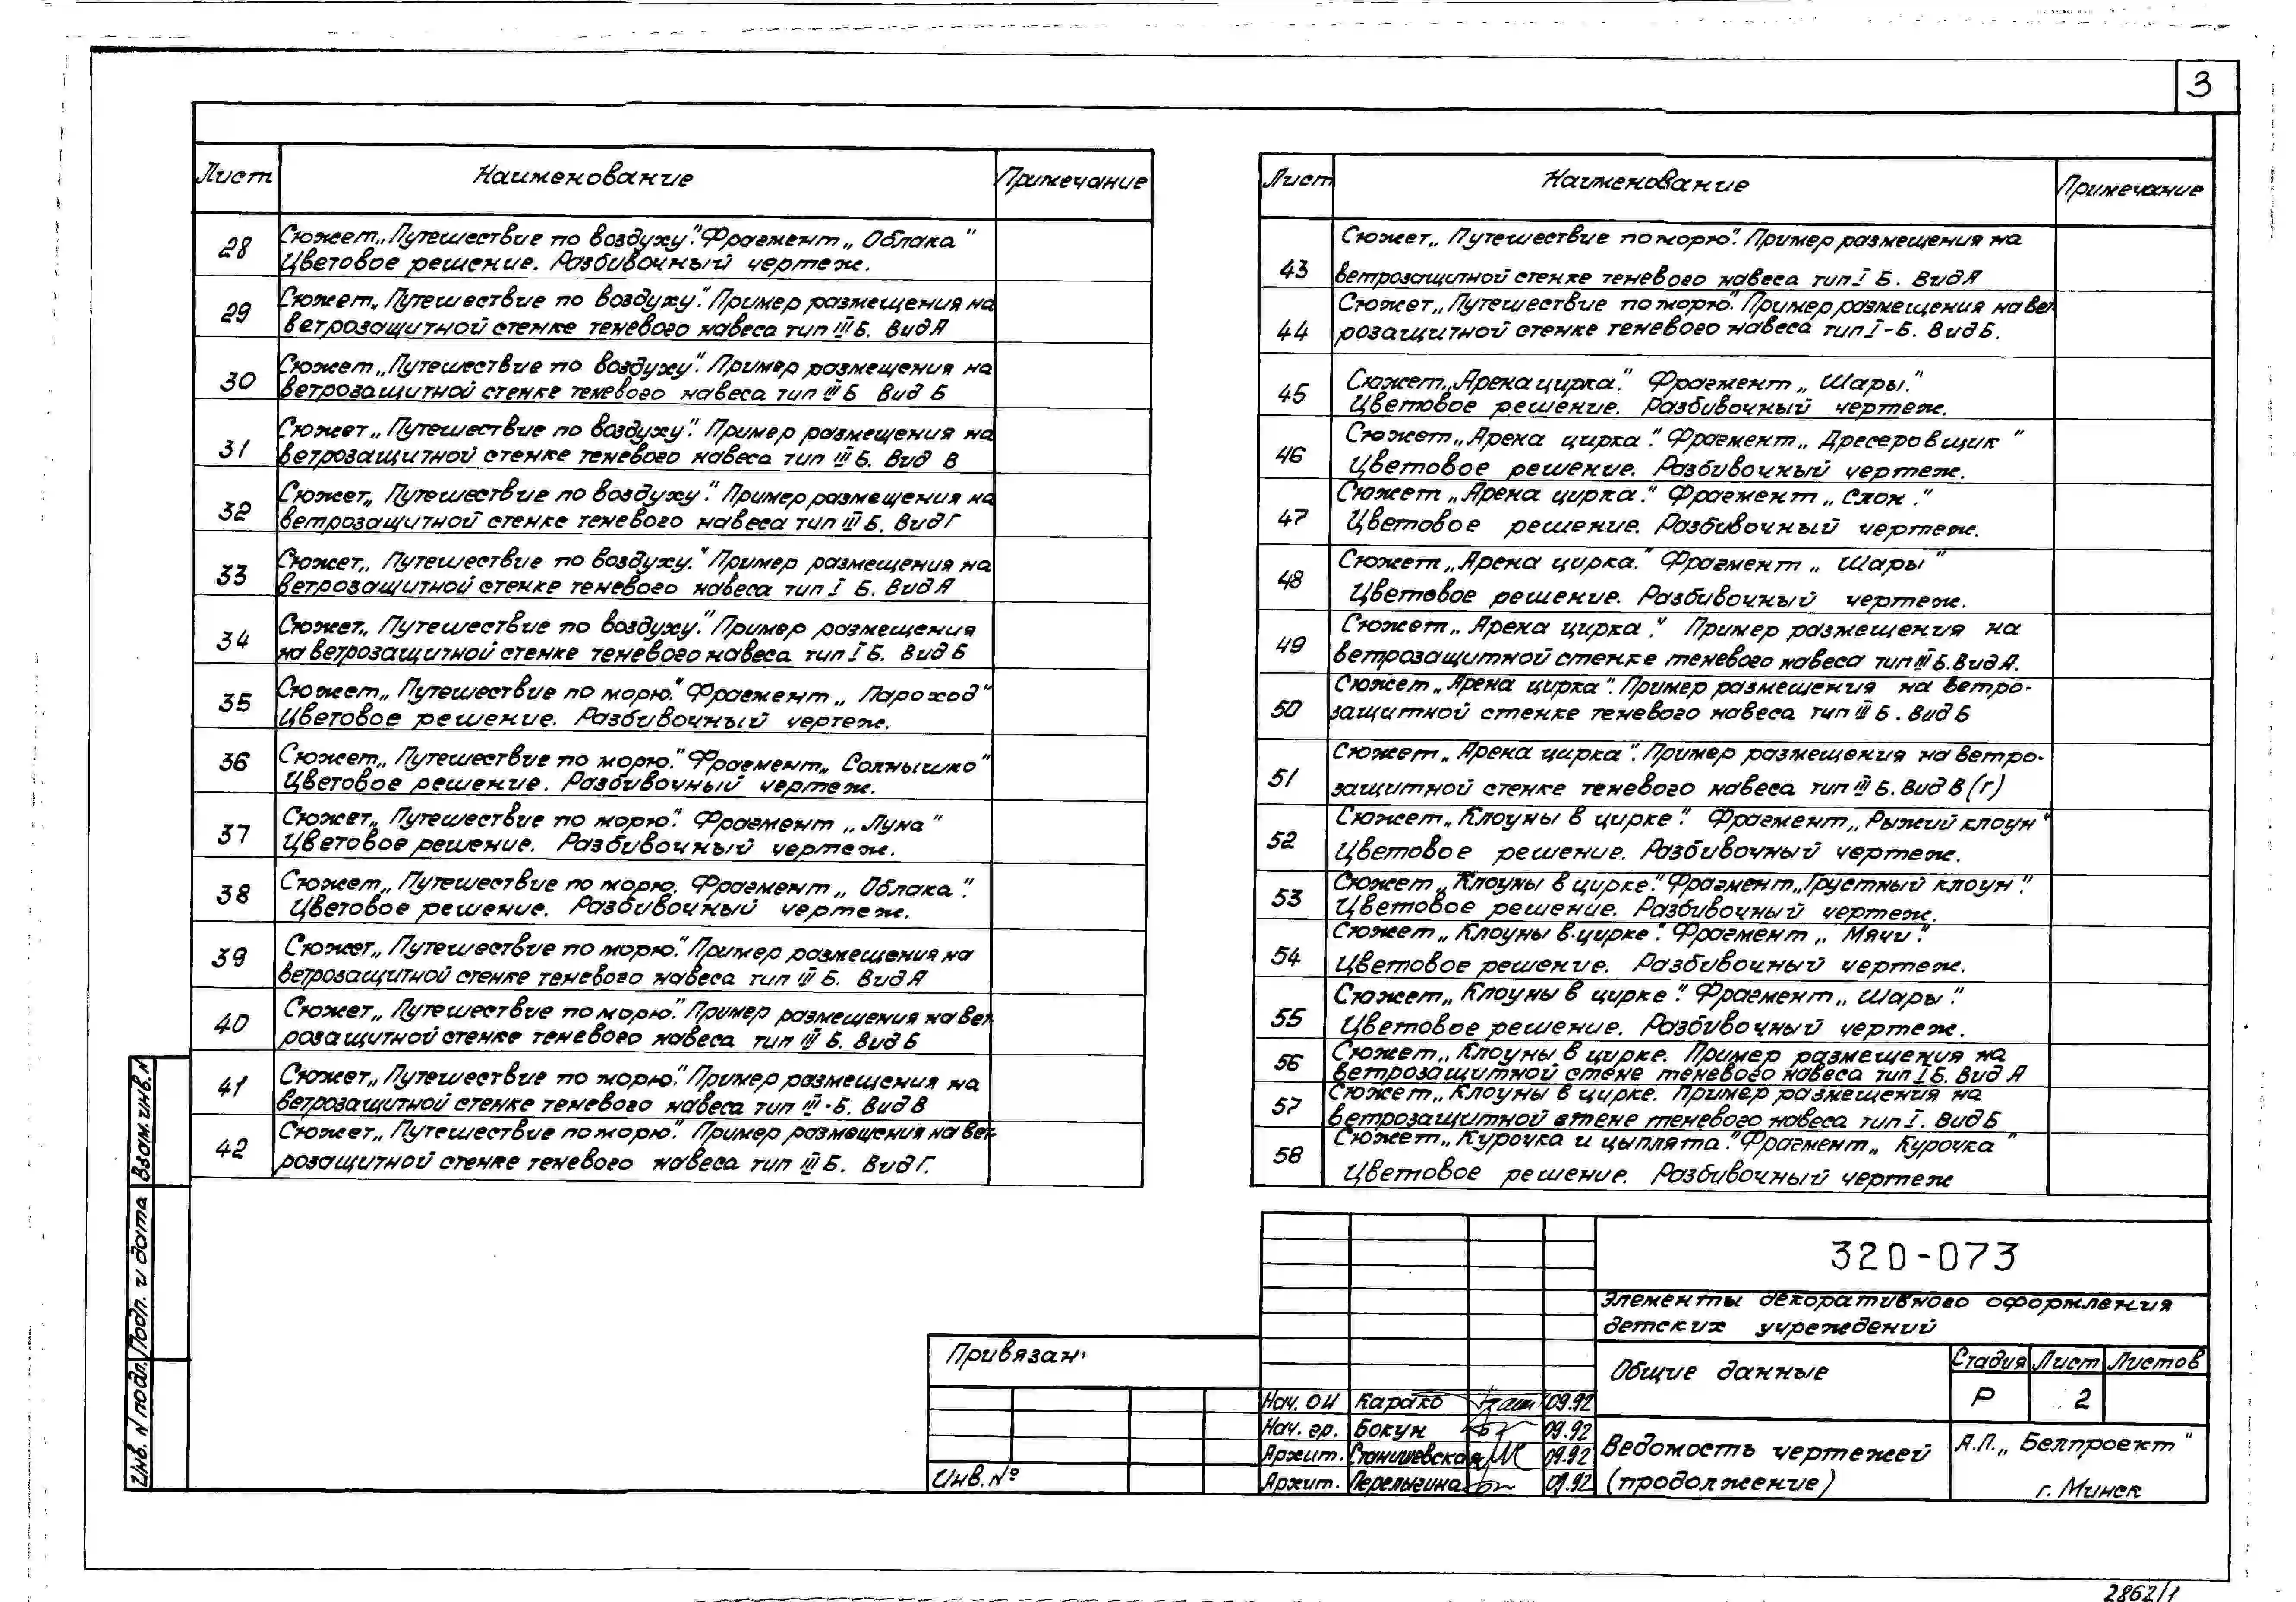 3
Лист Наименование Примечание
28 Сюжет „Путешествие по воздуху." Фрагмент „Облака"
Цветовое решение. Разбивочный чертеж.
29 Сюжет „Путешествие по воздуху." Пример размещения на
ветрозащитной стенке теневого навеса тип III Б. Вид А
30 Сюжет „Путешествие по воздуху". Пример размещения на
ветрозащитной стенке теневого навеса тип III Б Вид Б
31 Сюжет „Путешествие по воздуху". Пример размещения на
ветрозащитной стенке теневого навеса тип III Б. Вид В
32 Сюжет „Путешествие по воздуху." Пример размещения на
ветрозащитной стенке теневого навеса тип III Б. Вид Г
33 Сюжет „Путешествие по воздуху." Пример размещения на
ветрозащитной стенке теневого навеса тип I Б. Вид А
34 Сюжет „Путешествие по воздуху." Пример размещения
на ветрозащитной стенке теневого навеса тип I Б. Вид Б
35 Сюжет „Путешествие по морю." Фрагмент „Пароход"
Цветовое решение. Разбивочный чертеж.
36 Сюжет „Путешествие по морю." Фрагмент „Солнышко"
Цветовое решение. Разбивочный чертеж.
37 Сюжет „Путешествие по морю." Фрагмент „Луна"
Цветовое решение. Разбивочный чертеж.
38 Сюжет „Путешествие по морю. Фрагмент „Облака".
Цветовое решение. Разбивочный чертеж.
39 Сюжет „Путешествие по морю". Пример размещения на
ветрозащитной стенке теневого навеса тип III Б. Вид А
40 Сюжет „Путешествие по морю". Пример размещения на вет-
розащитной стенке теневого навеса тип III Б. Вид Б
41 Сюжет „Путешествие по морю." Пример размещения на
ветрозащитной стенке теневого навеса тип III-Б. Вид В
42 Сюжет „Путешествие по морю". Пример размещения на вет-
розащитной стенке теневого навеса тип III Б. Вид Г.
Лист Наименование Примечание
43 Сюжет „Путешествие по морю". Пример размещения на
ветрозащитной стенке теневого навеса тип I Б. Вид А
44 Сюжет „Путешествие по морю". Пример размещения на вет-
розащитной стенке теневого навеса тип I-Б. Вид Б.
45 Сюжет „Арена цирка." Фрагмент „Шары."
Цветовое решение. Разбивочный чертеж.
46 Сюжет „Арена цирка". Фрагмент „Дресеровщик"
Цветовое решение. Разбивочный чертеж.
47 Сюжет „Арена цирка." Фрагмент „Слон."
Цветовое решение. Разбивочный чертеж.
48 Сюжет „Арена цирка." Фрагмент „Шары"
Цветовое решение. Разбивочный чертеж.
49 Сюжет „Арена цирка." Пример размещения на
ветрозащитной стенке теневого навеса тип III Б. Вид А.
50 Сюжет „Арена цирка". Пример размещения на ветро-
защитной стенке теневого навеса тип III Б. Вид Б
51 Сюжет „Арена цирка". Пример размещения на ветро-
защитной стенке теневого навеса тип III Б. Вид В (г)
52 Сюжет „Клоуны в цирке". Фрагмент „Рыжий клоун"
Цветовое решение. Разбивочный чертеж.
53 Сюжет „Клоуны в цирке." Фрагмент „Грустный клоун".
Цветовое решение. Разбивочный чертеж.
54 Сюжет „Клоуны в цирке". Фрагмент „Мячи".
Цветовое решение. Разбивочный чертеж.
55 Сюжет „Клоуны в цирке". Фрагмент „Шары".
Цветовое решение. Разбивочный чертеж.
56 Сюжет „Клоуны в цирке. Пример размещения на
ветрозащитной стене теневого навеса тип I Б. Вид А
57 Сюжет „Клоуны в цирке. Пример размещения на
ветрозащитной стене теневого навеса тип I. Вид Б
58 Сюжет „Курочка и цыплята." Фрагмент „Курочка"
Цветовое решение. Разбивочный чертеж
Взам. инв. N
Подп. и дата
Инв. N подл.
Привязан:
Инв. №
Нач. ОИ Карако 09.92
Нач. гр. Бокун 09.92
Архит. Станишевская 09.92
Архит. Перелыгина 09.92
320-073
Элементы декоративного оформления
детских учреждений
Общие данные
Стадия Лист Листов
Р 2
Ведомость чертежей
(продолжение)
А.П. „Белпроект"
г. Минск
2862/1